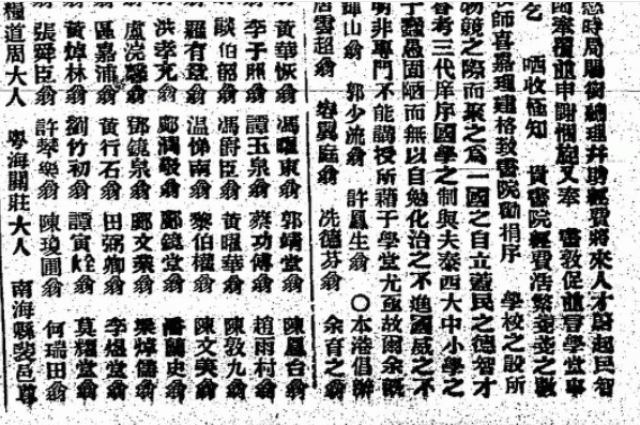 時局關懷總理幷助經費將來人才蔚起民智
申謝悃旋又奉 密敎促並會學堂事
乞 哂收極知 貴書院經費浩繁
師喜嘉理建格致書院勸捐序 學校之設所
物競之際而聚之爲一國之自立蓋民之德智才
考三代庠序國學之制與夫泰西大中小學之
愚面陋而無以自勉化治之不進國威之不
明非專門不能講授所藉于學堂尤亟故爾余
山翁 郭少流翁 許鳳生翁 〇本港倡辦
居雲超翁 容翼庭翁 冼德芬翁 余育之翁
黃華恢翁 馮曜東翁 郭靖堂翁 陳鳳台翁
李子照翁 譚玉泉翁 蔡功傅翁 趙雨村翁
談伯韶翁 馮爵臣翁 黃曜華翁 陳敦九翁
羅有登翁 溫悌南翁 黎伯權翁 陳文美翁
洪孝充翁 鄺滿敬翁 鄺鏡堂翁 潘蘭史翁
盧浣翁 鄧鏡泉翁 鄺文業翁 梁焯儲翁
區嘉浦翁 黃行石翁 田弼卿翁 李煜堂翁
黃焯林翁 劉竹初翁 譚寅銓翁 莫耀堂翁
張舜臣翁 許翠樂翁 陳瓊圃翁 何瑞田翁
糧道周大人 粤海關莊大人 南海縣裴邑尊